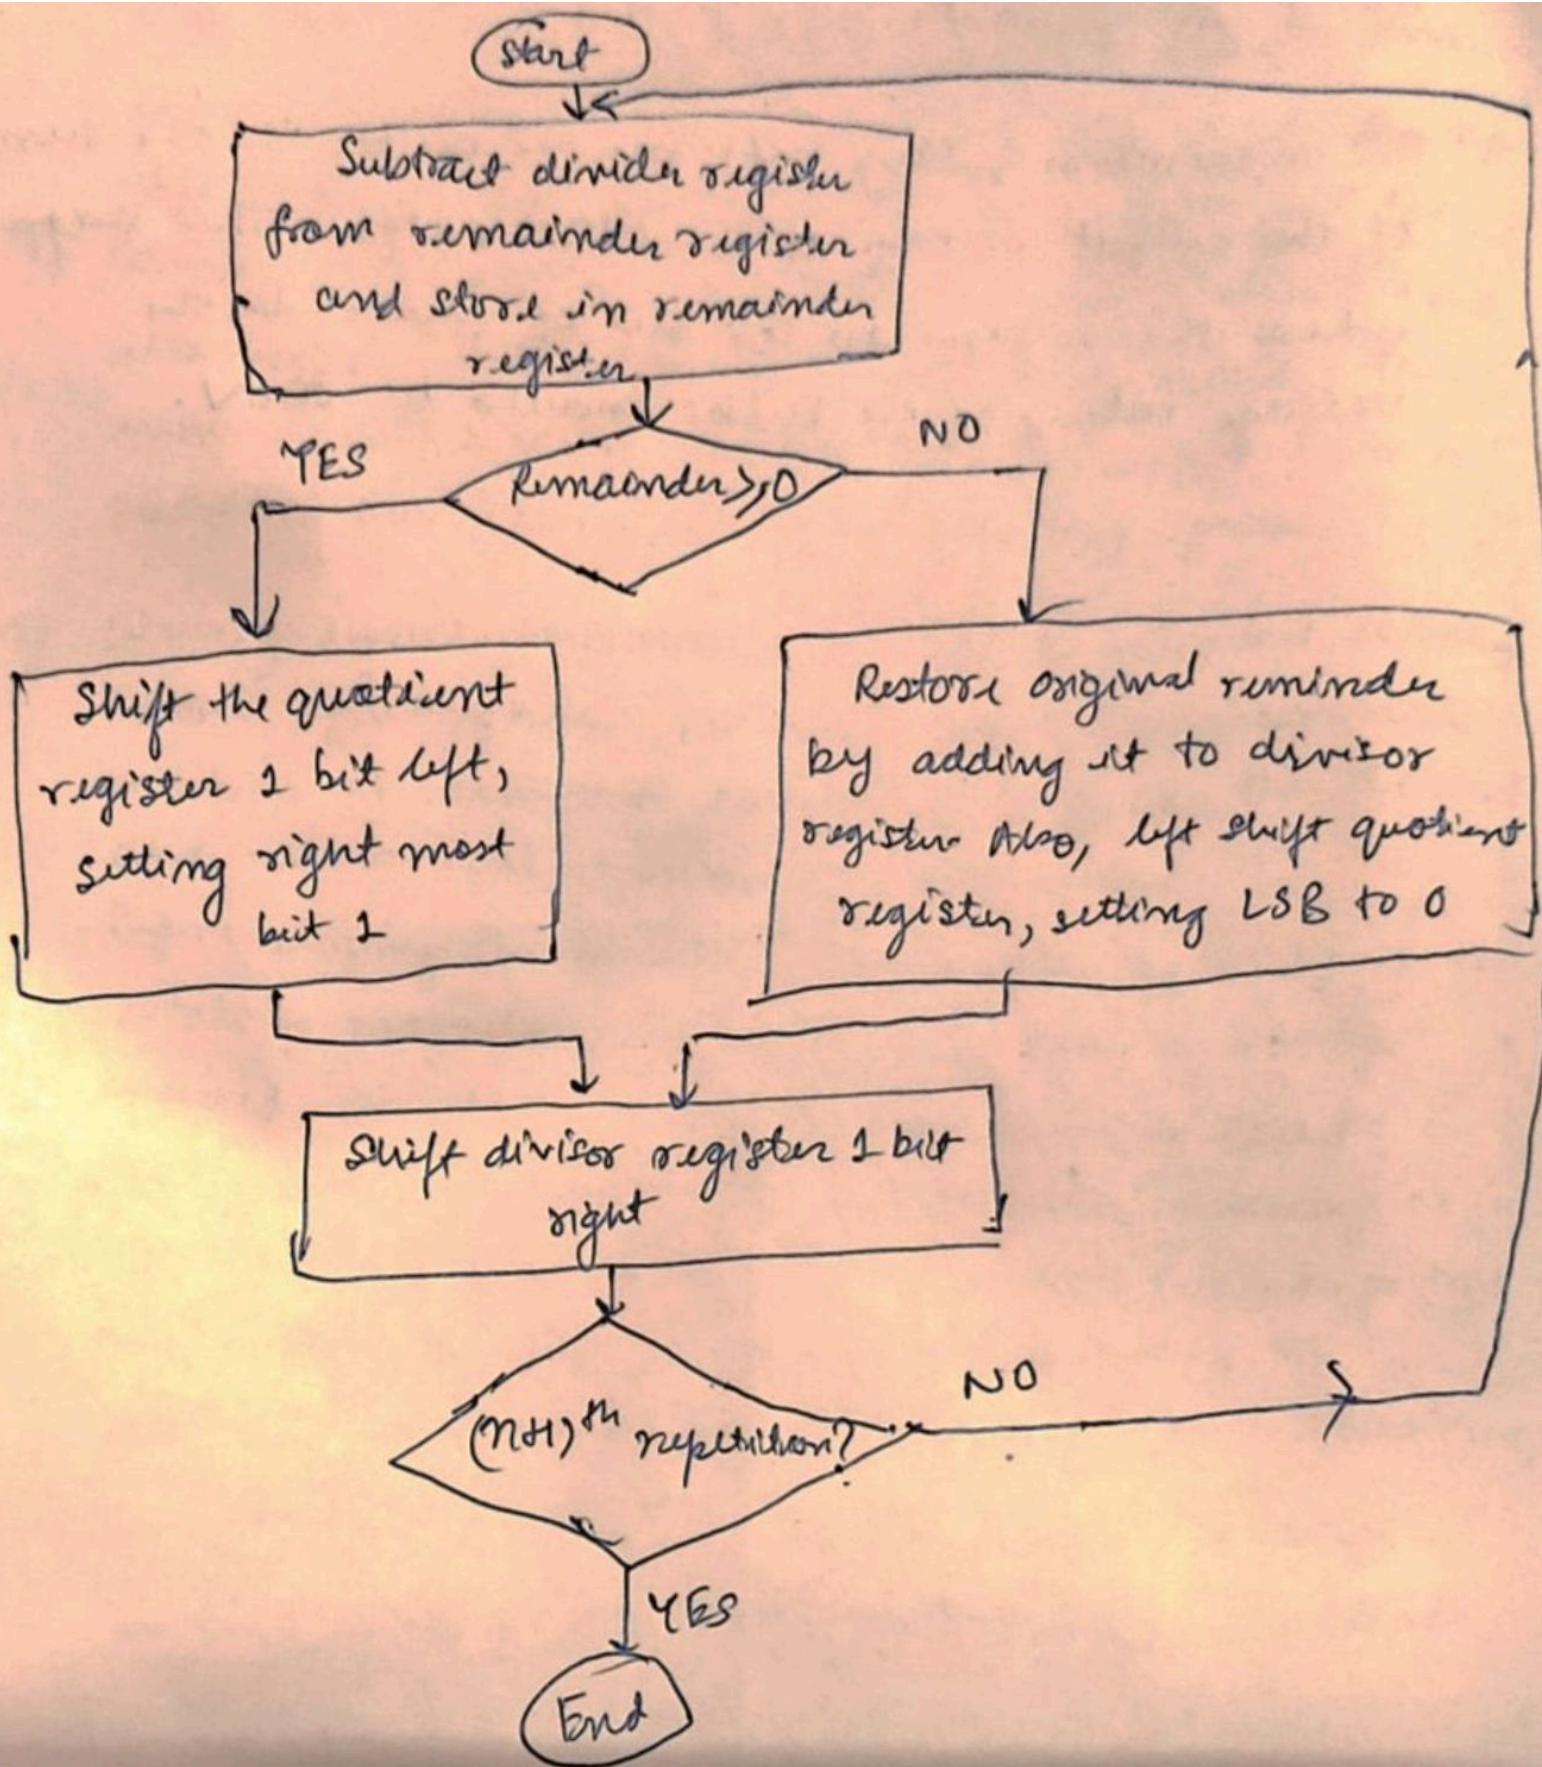 Start
Subtract divider register
from remainder register
and store in remainder
register
YES
NO
Remainder ≥ 0
Shift the quotient
register 1 bit left,
setting right most
bit 1
Restore original reminder
by adding it to divisor
register. Also, left shift quotient
register, setting LSB to 0
Shift divisor register 1 bit
right
(n+1)th repetition?
NO
YES
End